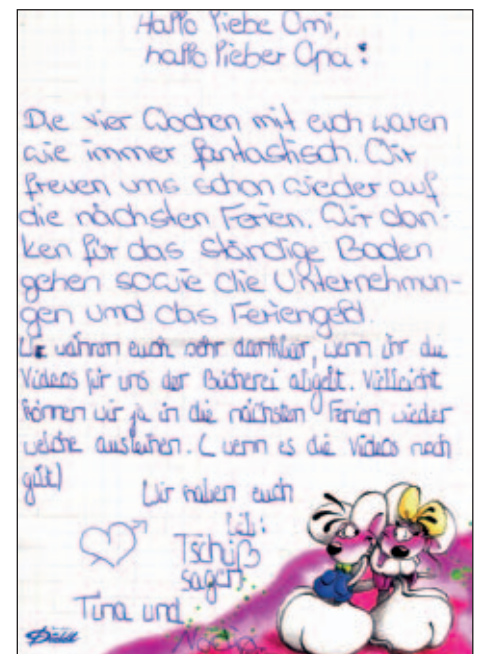 Hallo liebe Omi,
hallo lieber Opa!
Die vier Wochen mit euch waren
wie immer fantastisch. Wir
freuen uns schon wieder auf
die nächsten Ferien. Wir dan-
ken für das ständige Baden
gehen sowie die Unternehmun-
gen und das Feriengeld.
Wir währen euch sehr dankbar, wenn ihr die
Videos für uns der Bücherei abgebt. Villeicht
können wir ja in die nächsten Ferien wieder
welche ausleihen. (wenn es die Videos noch
gibt)
Wir haben euch
lieb!
Tschüß
sagen
Tina und
Diddl